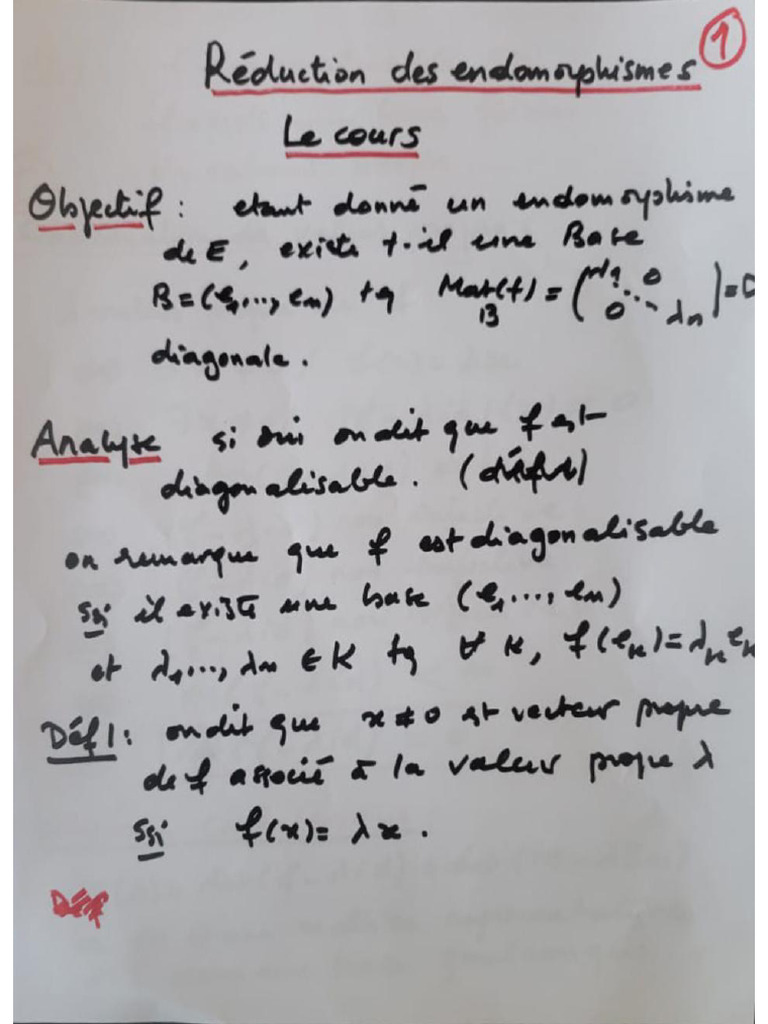 1
Réduction des endomorphismes
Le cours
Objectif : etant donné un endomorphisme
de E, existe t-il une Base
B = (e₁, ..., eₙ) tq Mat(f) = (λ₁ 0 ⋱ 0 λₙ) = D
B
diagonale.
Analyse si oui on dit que f est
diagonalisable.
on remarque que f est diagonalisable
ssi il existe une base (e₁, ..., eₙ)
et λ₁, ..., λₙ ∈ K tq ∀ k, f(eₖ) = λₖ eₖ
Déf 1 : on dit que x ≠ 0 est vecteur propre
de f associé à la valeur propre λ
ssi f(x) = λx.